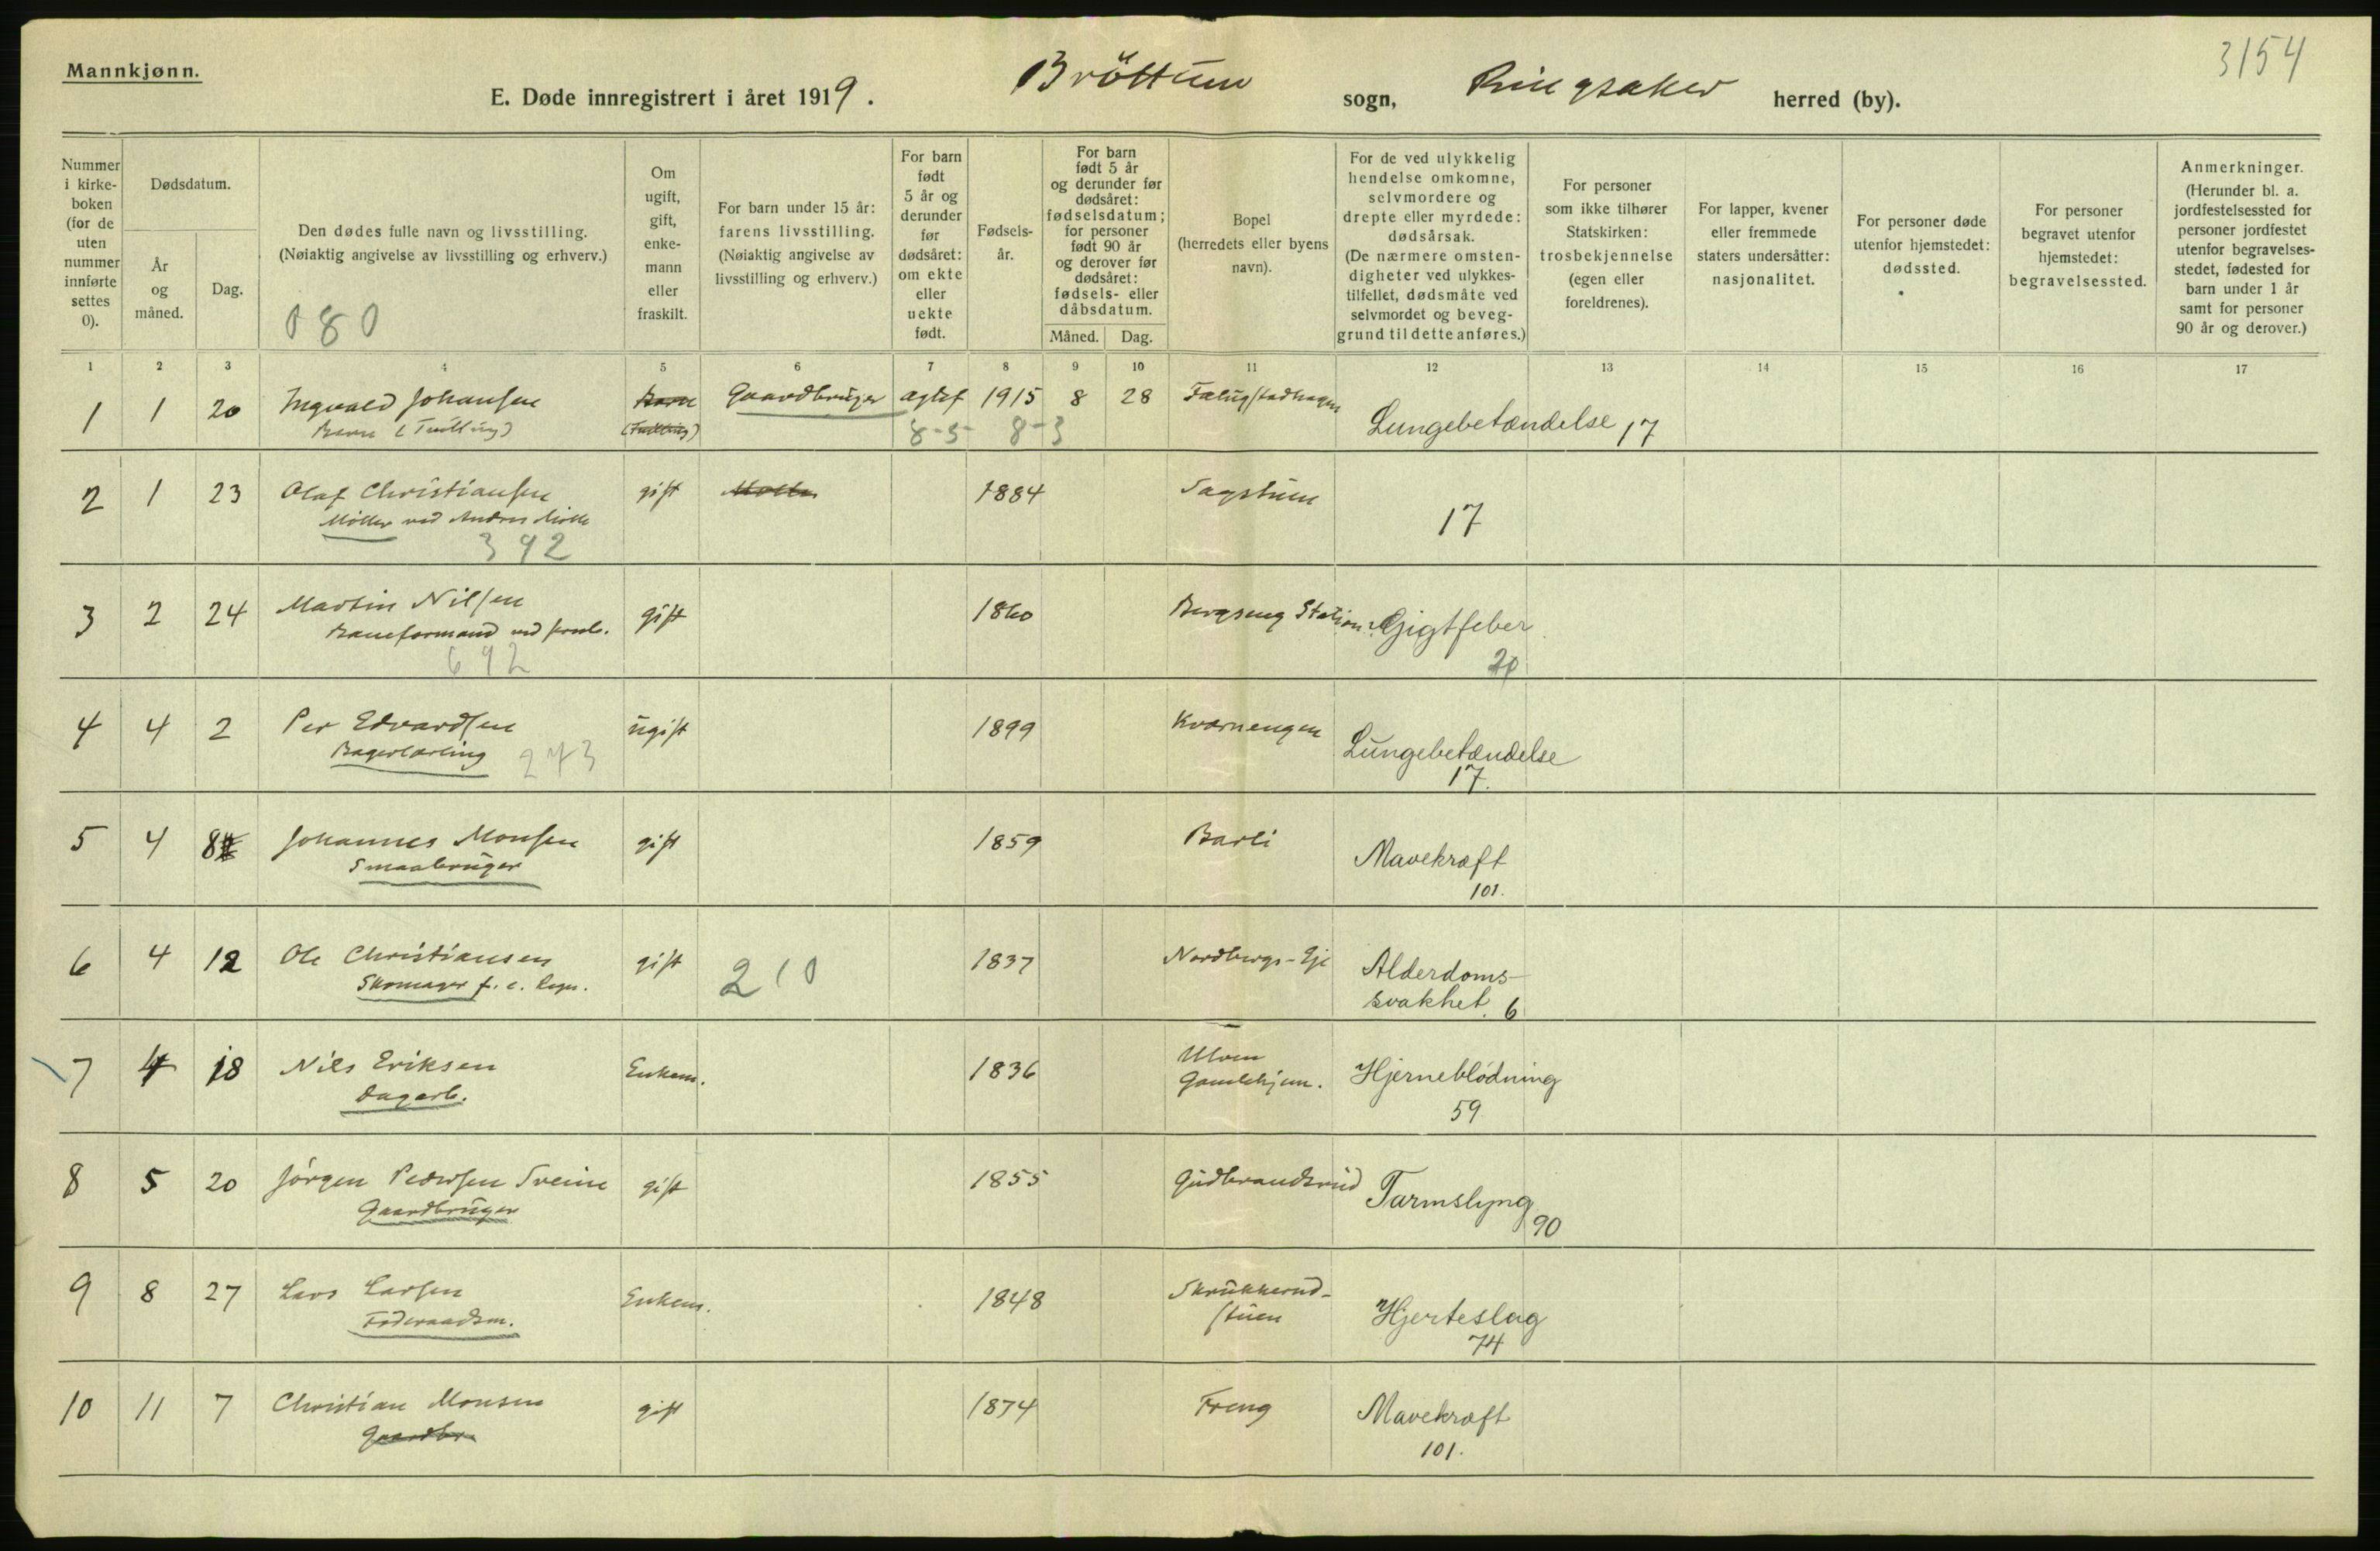 Mannkjønn.
3154
E. Døde innregistrert i året 1919. Bröttum sogn, Ringsaker herred (by).
Nummer i kirke-boken (for de uten nummer innførte settes 0).
Dødsdatum.
År og måned.
Dag.
Den dødes fulle navn og livsstilling.
(Nøiaktig angivelse av livsstilling og erhverv.)
080
Om ugift, gift, enke-mann eller fraskilt.
For barn under 15 år: farens livsstilling.
(Nøiaktig angivelse av livsstilling og erhverv.)
For barn født 5 år og derunder før dødsåret: om ekte eller uekte født.
Fødsels-år.
For barn født 5 år og derunder før dødsåret: fødselsdatum; for personer født 90 år og derover før dødsåret: fødsels- eller dåbsdatum.
Måned. Dag.
Bopel (herredets eller byens navn).
For de ved ulykkelig hendelse omkomne, selvmordere og drepte eller myrdede: dødsårsak.
(De nærmere omsten-digheter ved ulykkes-tilfellet, dødsmåte ved selvmordet og beveg-grund til dette anføres.)
For personer som ikke tilhører Statskirken: trosbekjennelse (egen eller foreldrenes).
For lapper, kvener eller fremmede staters undersåtter: nasjonalitet.
For personer døde utenfor hjemstedet: dødssted.
For personer begravet utenfor hjemstedet: begravelsessted.
Anmerkninger.
(Herunder bl. a. jordfestelsessted for personer jordfestet utenfor begravelses-stedet, fødested for barn under 1 år samt for personer 90 år og derover.)
1 2 3 4 5 6 7 8 9 10 11 12 13 14 15 16 17
1 1 20 Ingvald Johansen Barn Gaardbruger ægtef 1915 8 28
Barn (Tvilling) (Tvilling) 8-5 8-3 Lungebetændelse 17
2 1 23 Olaf Christiansen gift Møller 1884 Sagstuen
Møller ved 17
392
3 2 24 Martin Nilsen gift 1860 Bergseng Station Gigtfeber
Baneformand ved 20
692
4 4 2 Per Edvardsen ugift 1899 Kværnengen Lungebetændelse
Bagerlærling 273 17.
5 4 8 Johannes Monsen gift 1859 Barli Mavekræft
Smaabruger 101.
6 4 12 Ole Christiansen gift 210 1837 Nordbergs-Eje Alderdoms-
Skomager f. e. svakhet. 6
7 4 18 Nils Eriksen Enkem. 1836 Ulven Hjerneblödning
Dagarb. Gamlehjem. 59
8 5 20 Jörgen Pedersen Sveine gift 1855 Gudbrandsrud Tarmslyng
Gaardbruger 90
9 8 27 Lars Larsen Enkem. 1848 Skrukkerud- Hjerteslag
Föderaadsm. stuen 74
10 11 7 Christian Monsen gift 1874 Freng Mavekræft
Gaardbr. 101.